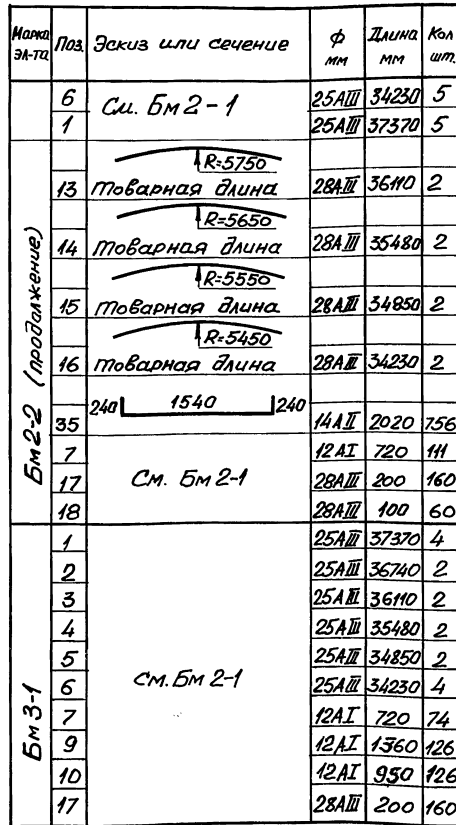 Марка эл-та Поз. Эскиз или сечение ϕ мм Длина мм Кол шт.
6 См. Бм 2-1 25АIII 34230 5
1 25АIII 37370 5
Бм 2-2 (продолжение)
R=5750
13 Товарная длина 28АIII 36110 2
R=5650
14 Товарная длина 28АIII 35480 2
R=5550
15 Товарная длина 28АIII 34850 2
R=5450
16 Товарная длина 28АIII 34230 2
240 1540 240
35 14АII 2020 756
7 12АI 720 111
17 См. Бм 2-1 28АIII 200 160
18 28АIII 100 60
Бм 3-1
1 25АIII 37370 4
2 25АIII 36740 2
3 25АIII 36110 2
4 25АIII 35480 2
5 25АIII 34850 2
6 См. Бм 2-1 25АIII 34230 4
7 12АI 720 74
9 12АI 1360 126
10 12АI 950 126
17 28АIII 200 160